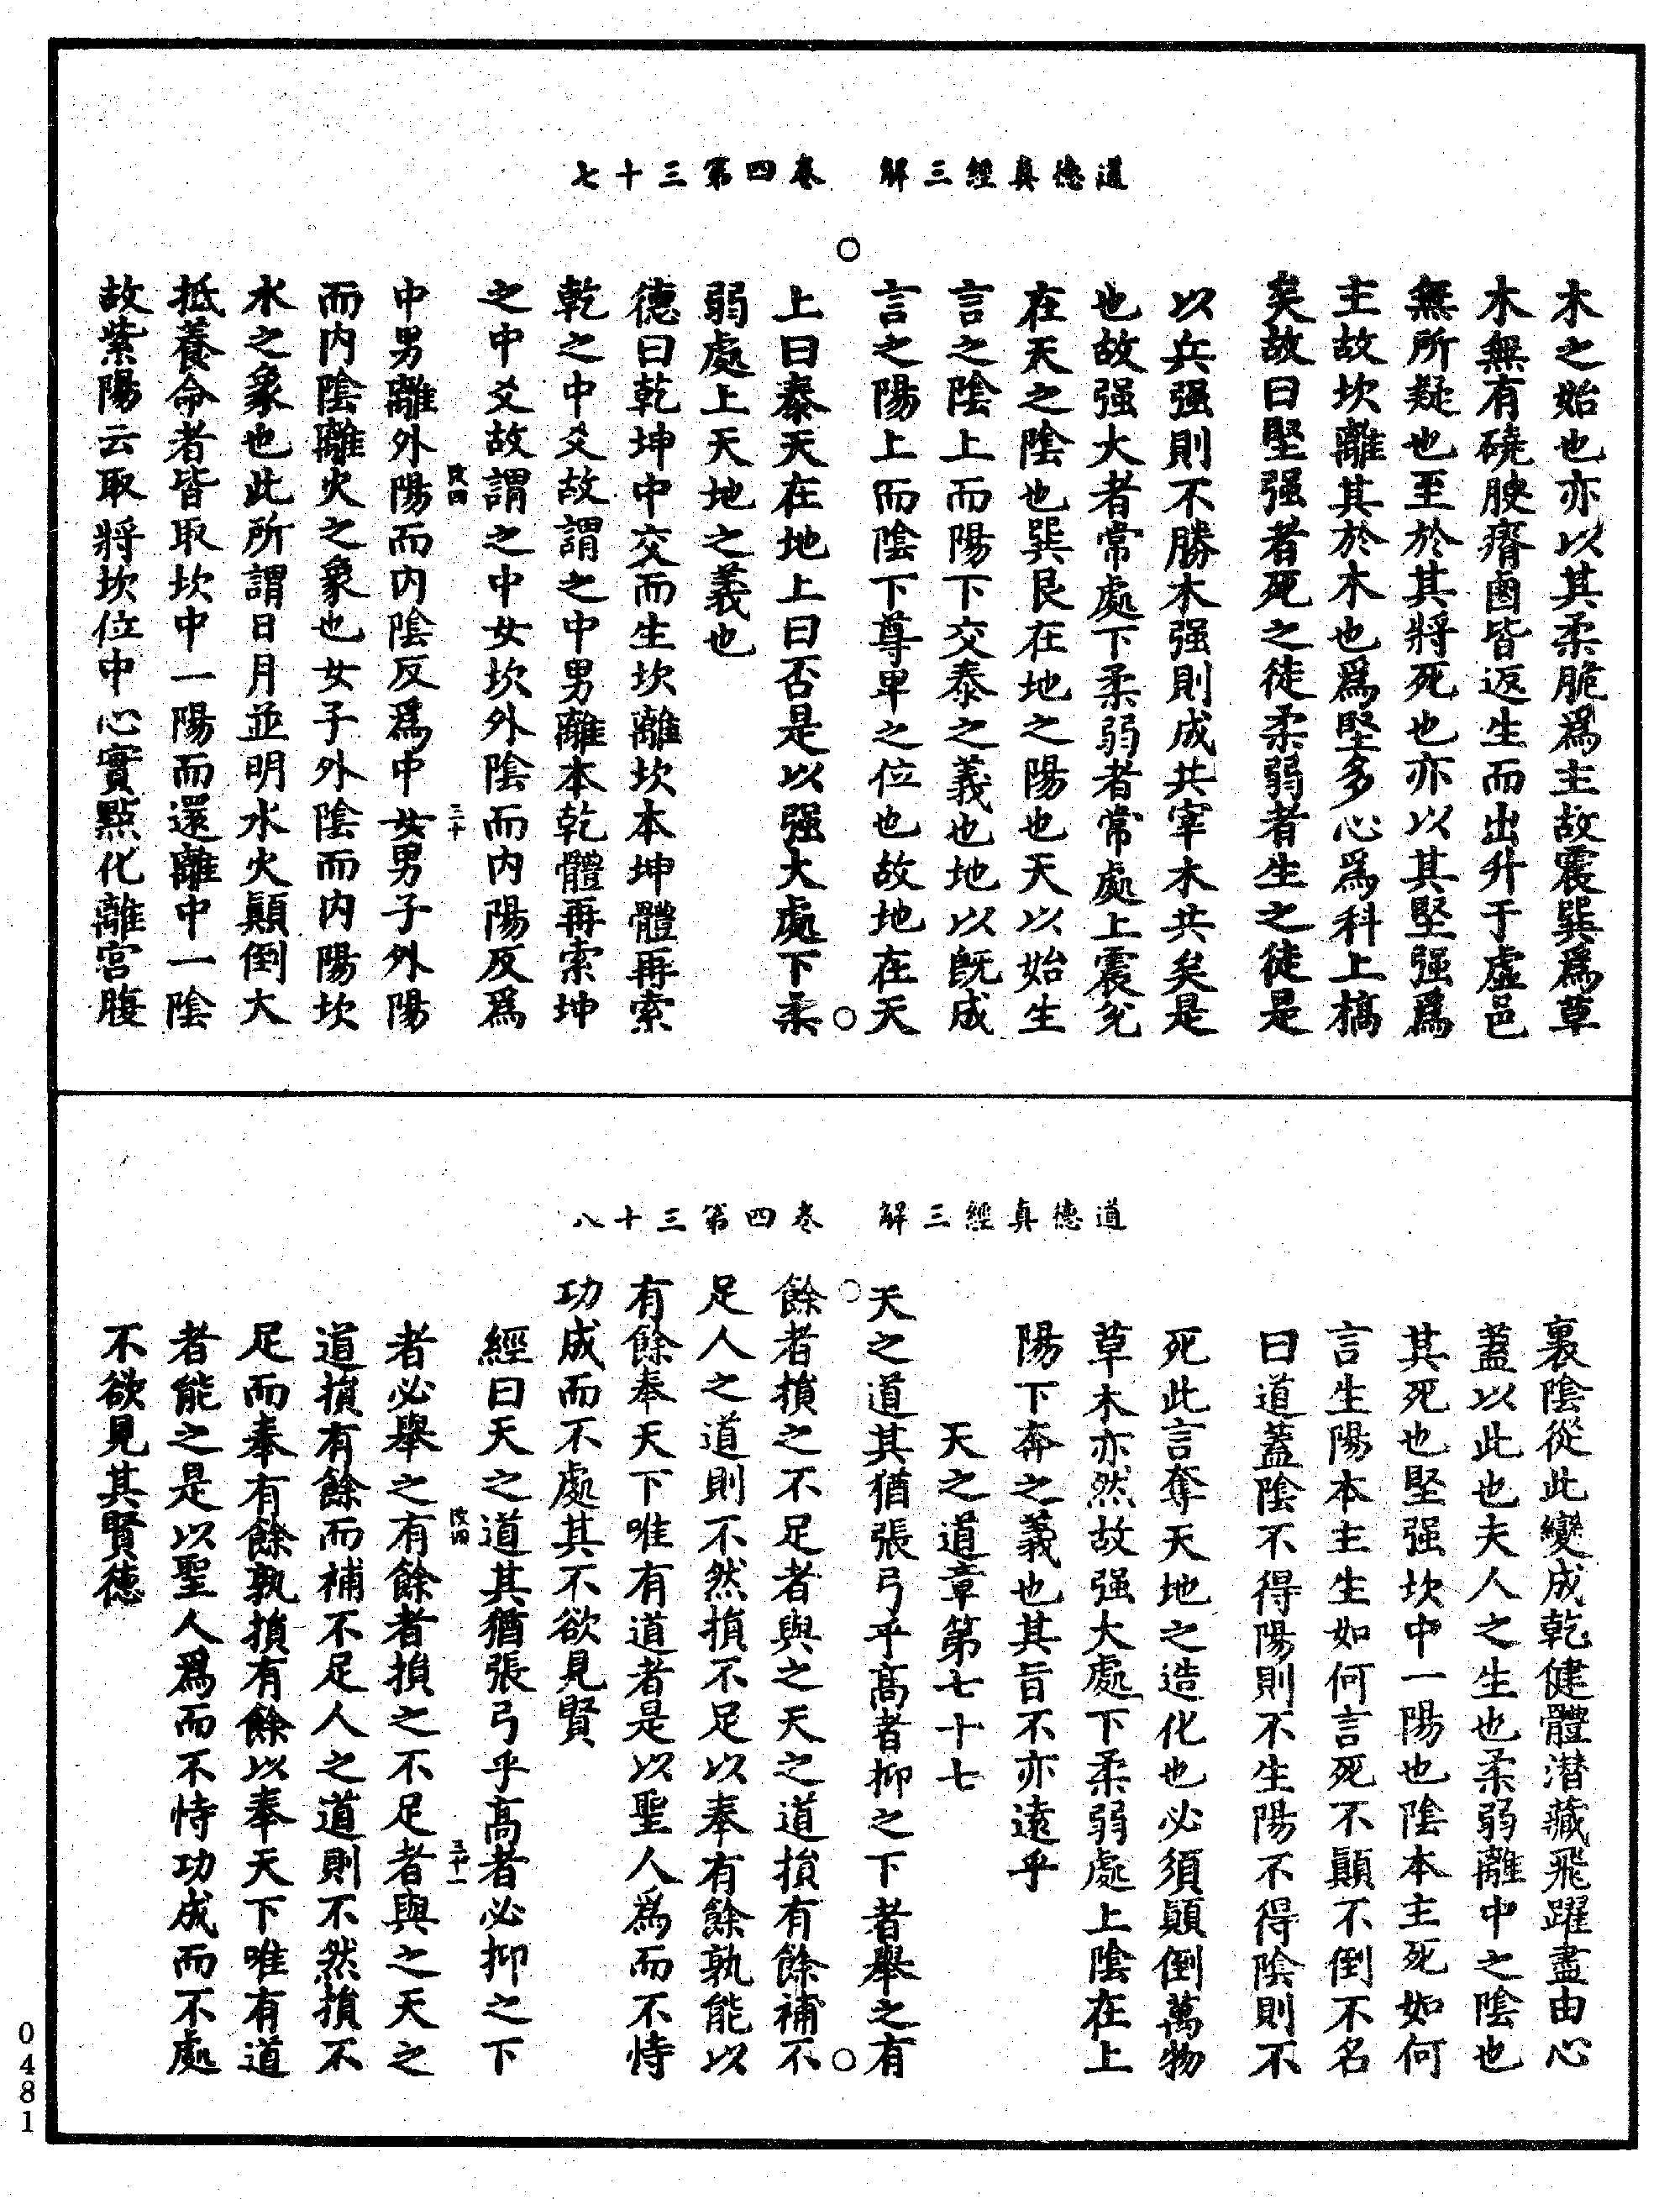 道德真經三解　卷四第三十七
木之始也亦以其柔脆爲主故震巽爲草
木無有磽腴瘠鹵皆返生而出升于虛邑
無所疑也至於其將死也亦以其堅强爲
主故坎離其於木也爲堅多心爲科上槁
矣故曰堅强者死之徒柔弱者生之徒是
以兵强則不勝木强則成共宰木共矣是
也故强大者常處下柔弱者常處上震兌
在天之陰也巽艮在地之陽也天以始生
言之陰上而陽下交泰之義也地以旣成
言之陽上而陰下尊卑之位也故地在天
上曰泰天在地上曰否是以强大處下柔
弱處上天地之義也
德曰乾坤中交而生坎離坎本坤體再索
乾之中爻故謂之中男離本乾體再索坤
之中爻故謂之中女坎外陰而内陽反爲
改四　三十
中男離外陽而内陰反爲中女男子外陽
而内陰離火之象也女子外陰而内陽坎
水之象也此所謂日月並明水火顚倒大
抵養命者皆取坎中一陽而還離中一陰
故紫陽云取將坎位中心實點化離宮腹
道德真經三解　卷四第三十八
裏陰從此變成乾健體潛藏飛躍盡由心
蓋以此也夫人之生也柔弱離中之陰也
其死也堅强坎中一陽也陰本主死如何
言生陽本主生如何言死不顚不倒不名
曰道蓋陰不得陽則不生陽不得陰則不
死此言奪天地之造化也必須顚倒萬物
草木亦然故强大處下柔弱處上陰在上
陽下奔之義也其旨不亦遠乎
天之道章第七十七
天之道其猶張弓乎高者抑之下者舉之有
餘者損之不足者與之天之道損有餘補不
足人之道則不然損不足以奉有餘孰能以
有餘奉天下唯有道者是以聖人爲而不恃
功成而不處其不欲見賢
經曰天之道其猶張弓乎高者必抑之下
改四　三十一
者必舉之有餘者損之不足者與之天之
道損有餘而補不足人之道則不然損不
足而奉有餘孰損有餘以奉天下唯有道
者能之是以聖人爲而不恃功成而不處
不欲見其賢德
0481